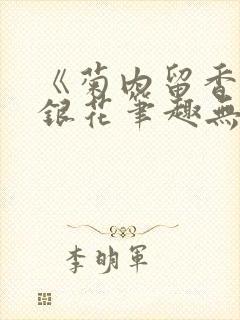 《菊内留香
銀花筆趣無
李明軍